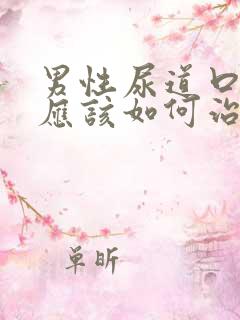 男性尿道口
应该如何治
单昕